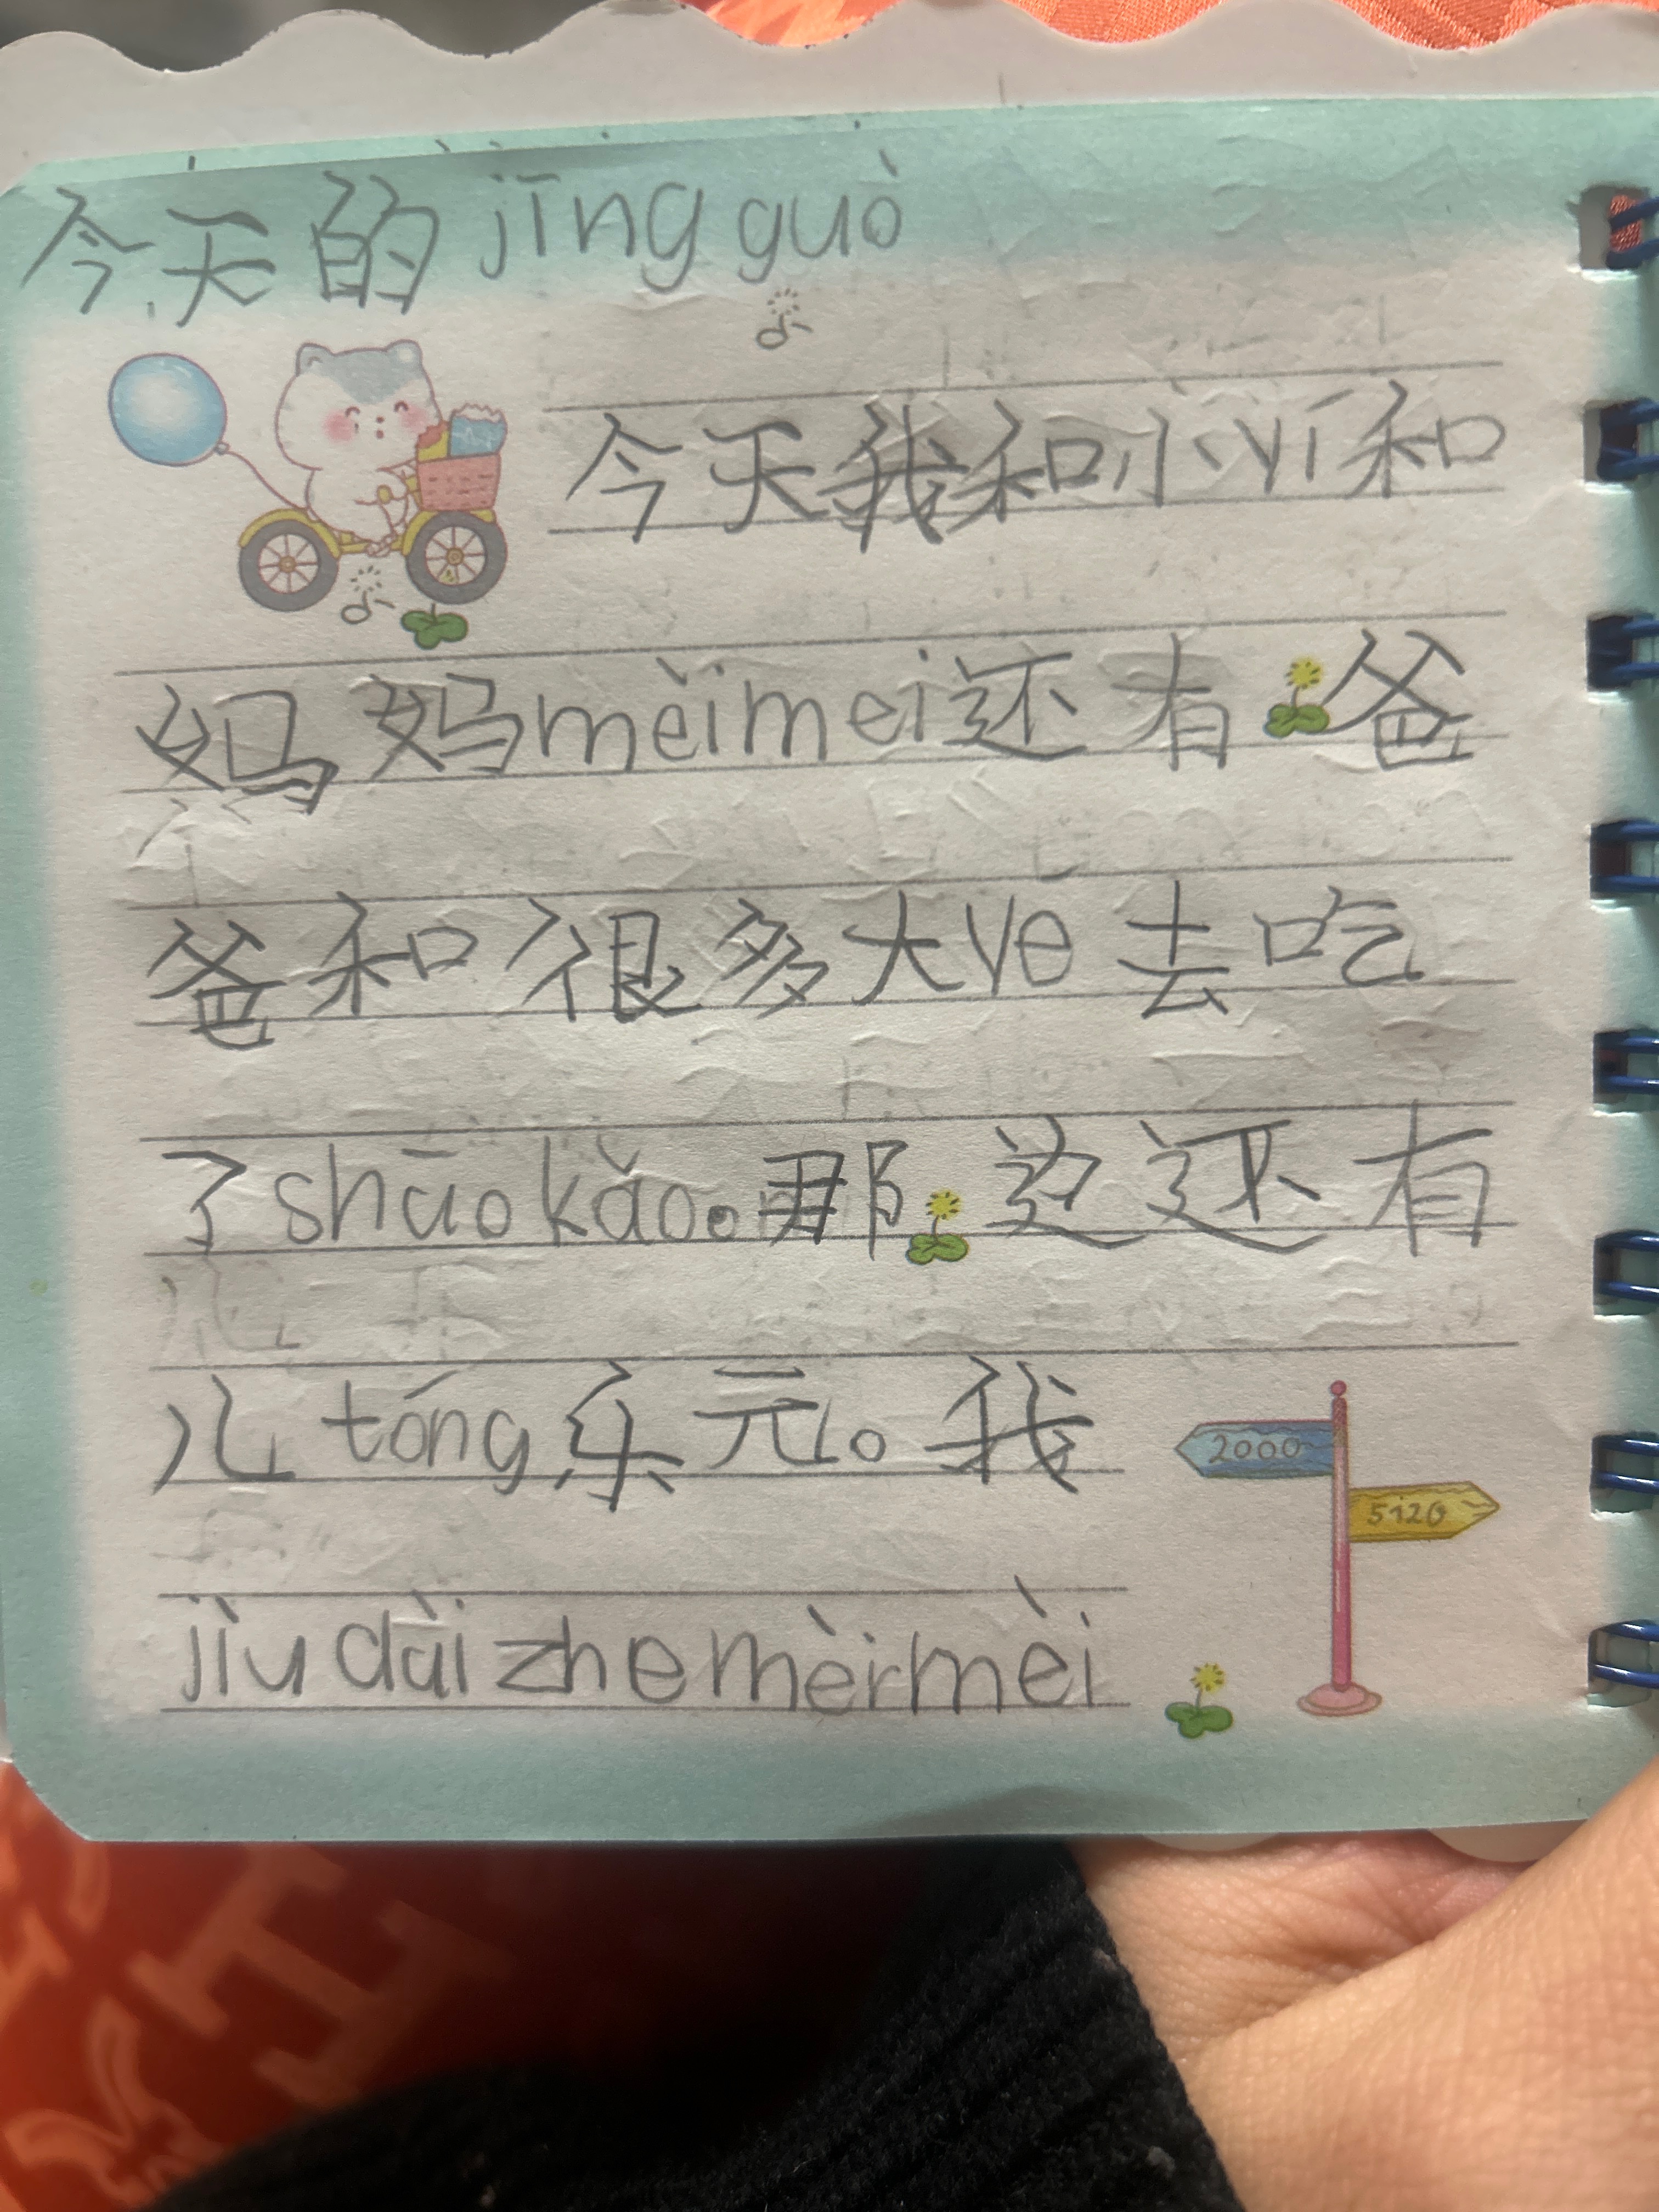 今天的jīng guò
今天我和小yí和
妈妈mèimei还有爸
爸和很多大yé去吃
了shāo kǎo。那边还有
儿tóng乐元。我
2000
5120
jìu dài zhe mèimèi